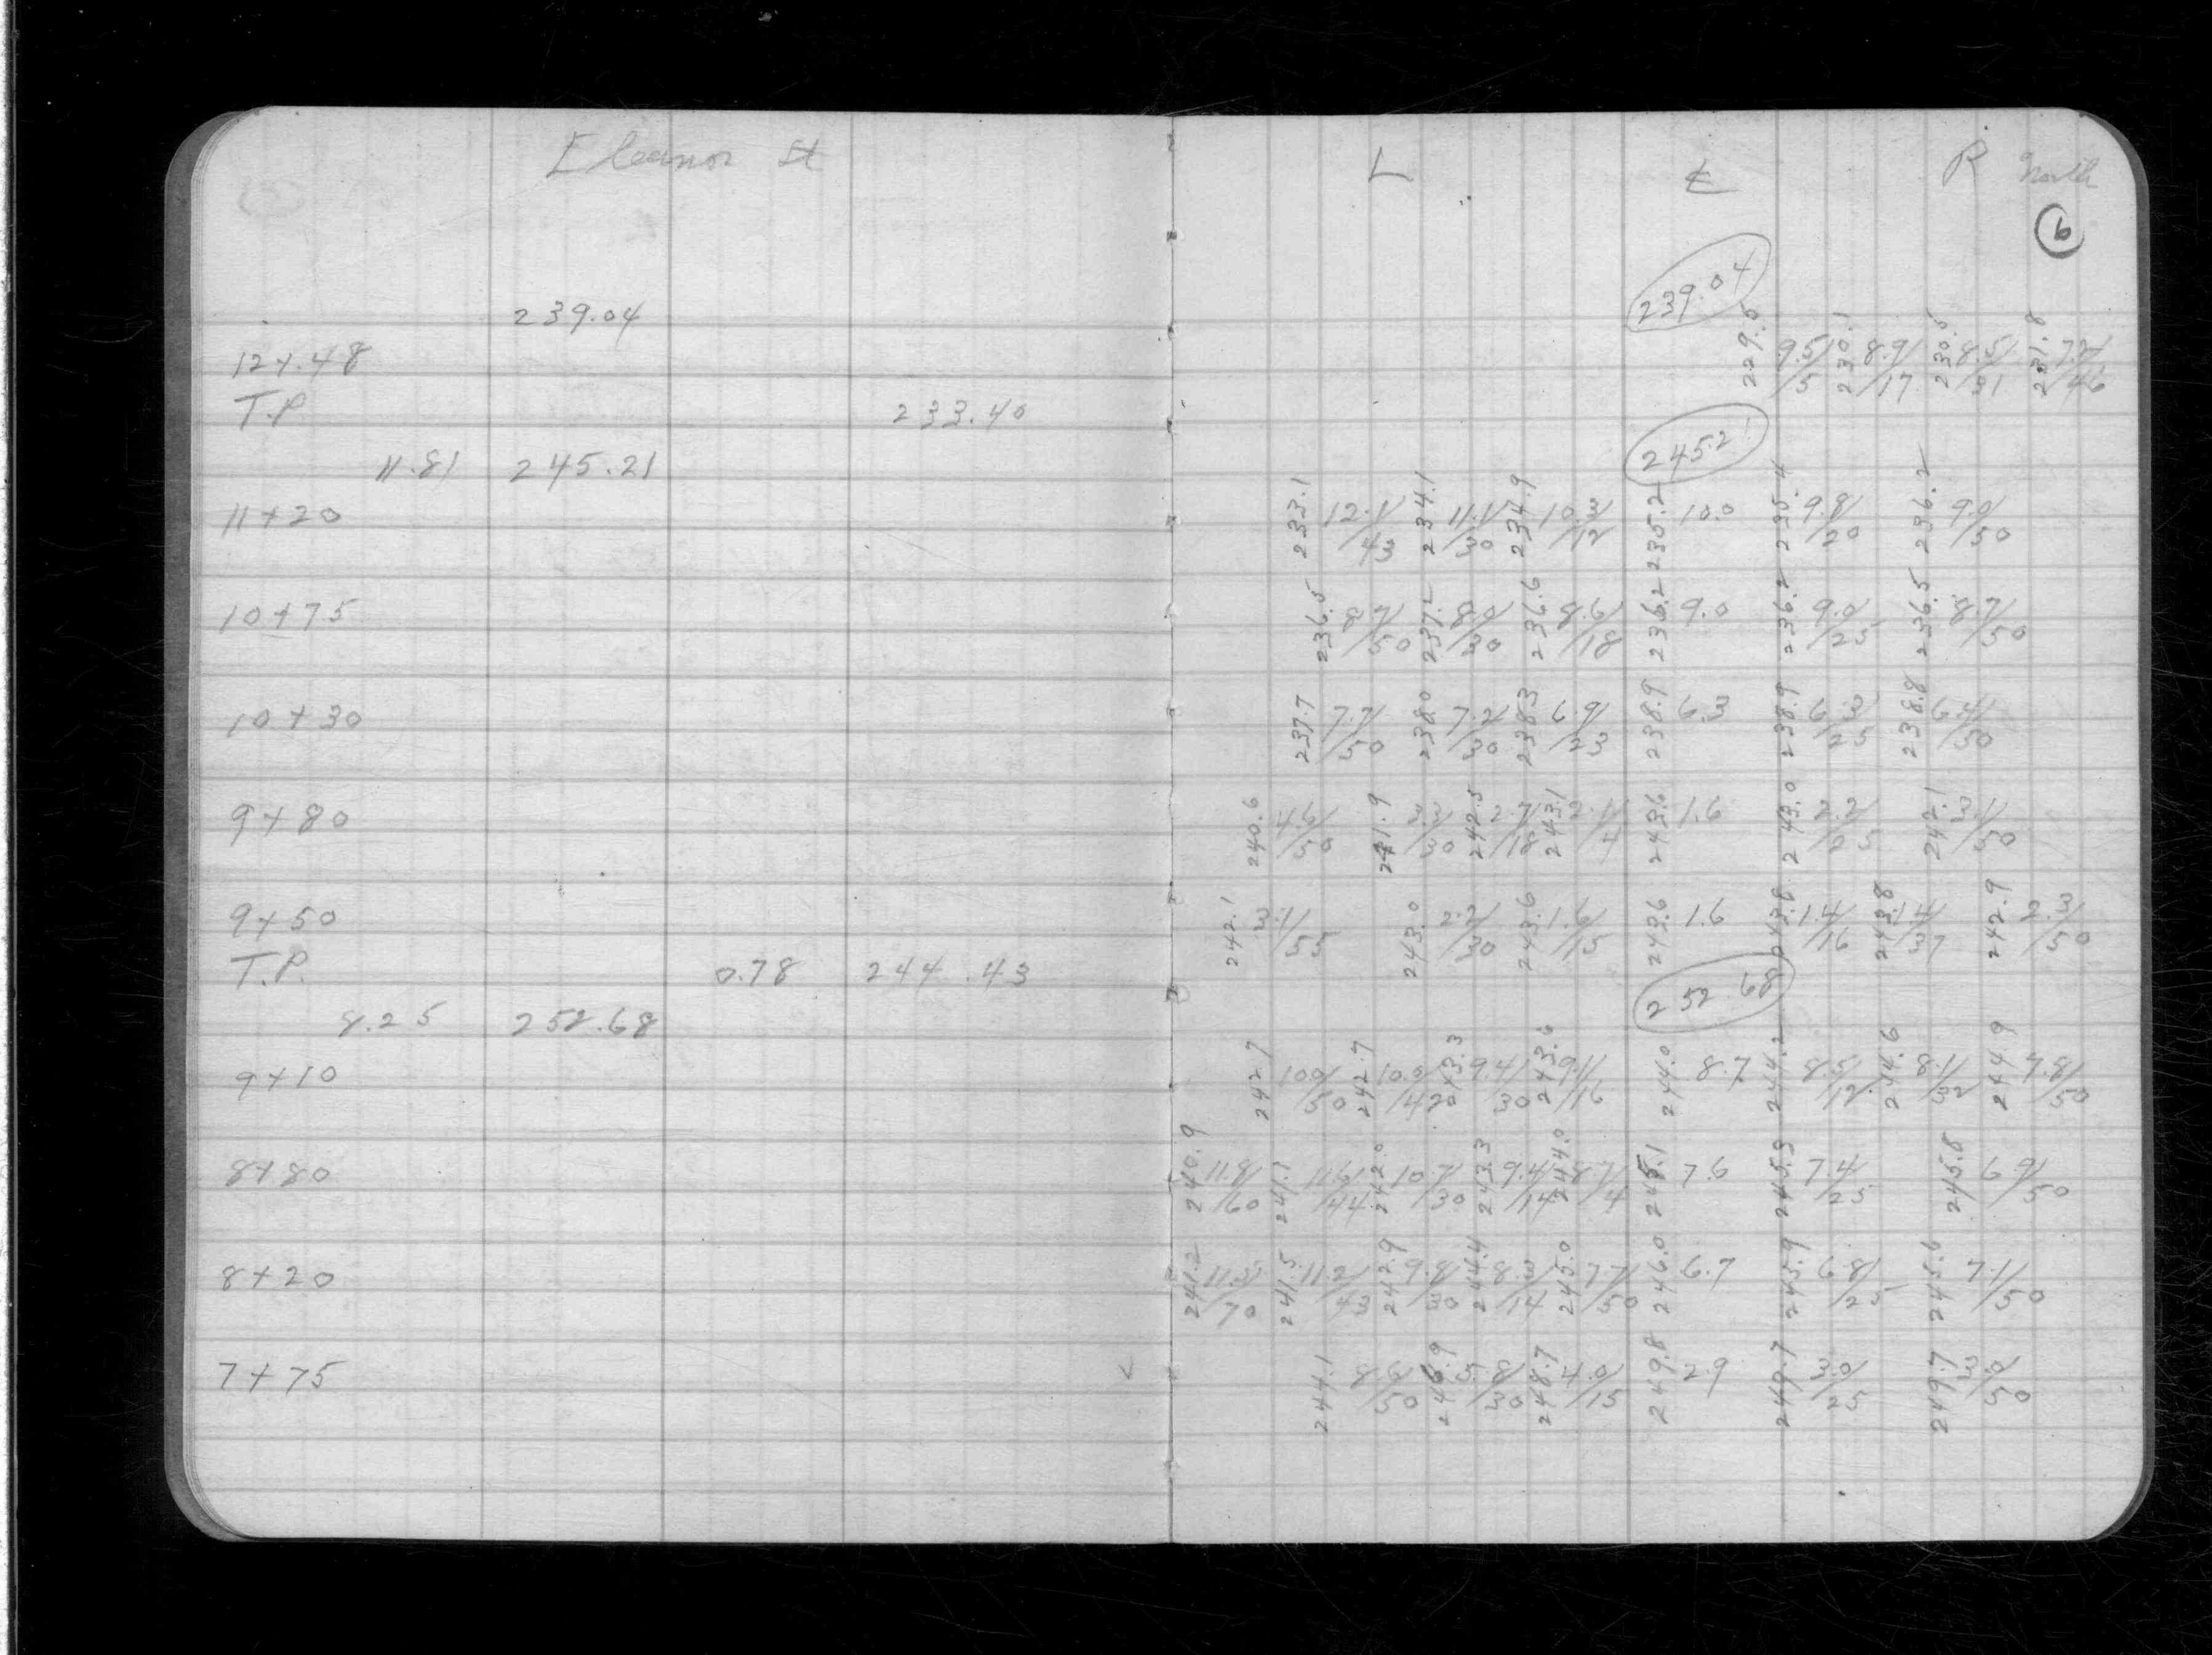 Eleanor St
239.04
12+.48
T.P. 233.40
11.81 245.21
11+20
10+75
10+30
9+80
9+50
T.P. 0.78 244.43
8.25 252.68
9+10
8+80
8+20
7+75
L ℄ R North
6
239.04
229.5 9.5/5 230.1 8.9/17 230.5 8.5/31 231.8 7.2/46
245.21
233.1 12.1/43 234.1 11.1/30 234.9 10.3/12 235.2 10.0 235.4 9.8/20 236.2 9.0/50
236.5 8.7/50 237.2 8.0/30 236.6 8.6/18 236.2 9.0 236.2 9.0/25 236.5 8.7/50
237.7 7.7/50 238.0 7.2/30 238.3 6.9/23 238.9 6.3 238.9 6.3/25 238.8 6.4/50
240.6 4.6/50 241.9 3.3/30 242.5 2.7/18 243.1 2.1/4 243.6 1.6 243.0 2.2/25 242.1 3.1/50
242.1 3.1/55 243.0 2.2/30 243.6 1.6/15 243.6 1.6 243.8 1.4/16 243.8 1.4/37 242.9 2.3/50
252.68
242.7 10.0/50 242.7 10.0/42 243.3 9.4/30 243.6 9.1/16 244.0 8.7 244.2 8.5/12 244.6 8.1/32 244.9 7.8/50
240.9 11.8/60 241.1 11.6/44 242.0 10.7/30 243.3 9.4/14 244.0 8.7/4 245.1 7.6 245.3 7.4/25 245.8 6.9/50
241.2 11.5/70 241.5 11.2/43 242.9 9.8/30 244.4 8.3/14 245.0 7.7/50 246.0 6.7 245.9 6.8/25 245.6 7.1/50
244.1 8.6/50 246.9 5.8/30 248.7 4.0/15 249.8 2.9 249.7 3.0/25 249.7 3.0/50